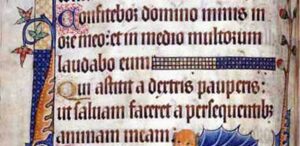 Confitebor domino nimis in
ore meo: et in medio multorum
laudabo eum
Qui astitit a dextris pauperis:
ut saluam faceret a persequentibz
animam meam